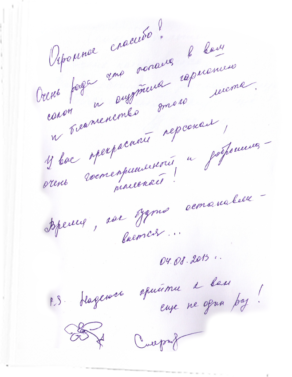 Огромное спасибо!
Очень рада что попала в ваш
салон и ощутила гармонию
и блаженство этого места.
У вас прекрасный персонал,
очень гостеприимный и доброжела-
тельный!
Время, как будто остановли-
вается...
04.08.2013..
P.S. Надеюсь прийти к вам
еще не один раз!